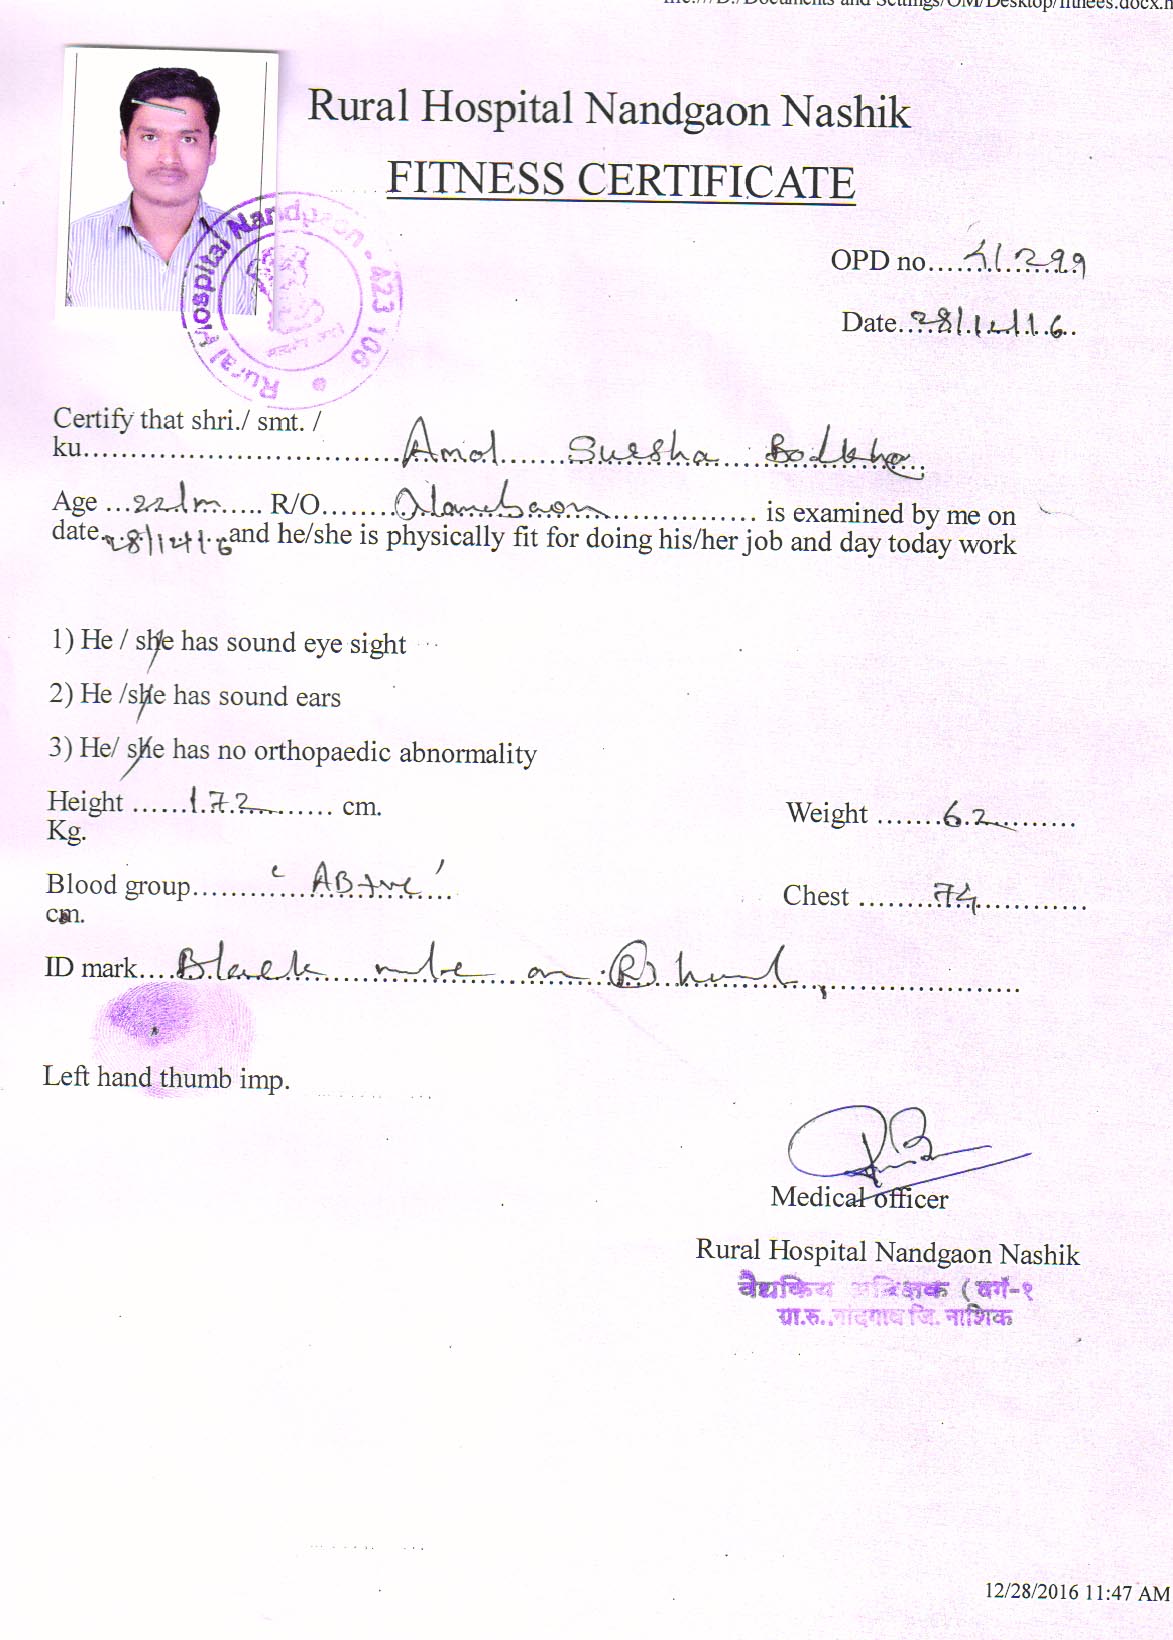 file:///D:/Documents and Settings/OM/Desktop/fitnees.docx.h
Rural Hospital Nandgaon Nashik
FITNESS CERTIFICATE
Rural Hospital Nandgaon • 423 106 •
OPD no.....
Date..28/12/16..
Certify that shri./ smt. /
ku..............................Amol......Suresha....Bodkhe...
Age ...22....... R/O.......................................... is examined by me on
date..28/12/16..and he/she is physically fit for doing his/her job and day today work
1) He / she has sound eye sight
2) He /she has sound ears
3) He/ she has no orthopaedic abnormality
Height ......172.......... cm.
Weight .......62..........
Kg.
Blood group..........‘AB+ve’....
Chest ........74............
cm.
ID mark....Black.......on..(R) hand......................
Left hand thumb imp.
Medical officer
Rural Hospital Nandgaon Nashik
वैद्यकिय (वर्ग-१
ग्रा.रु. नांदगाव जि. नाशिक
12/28/2016 11:47 AM